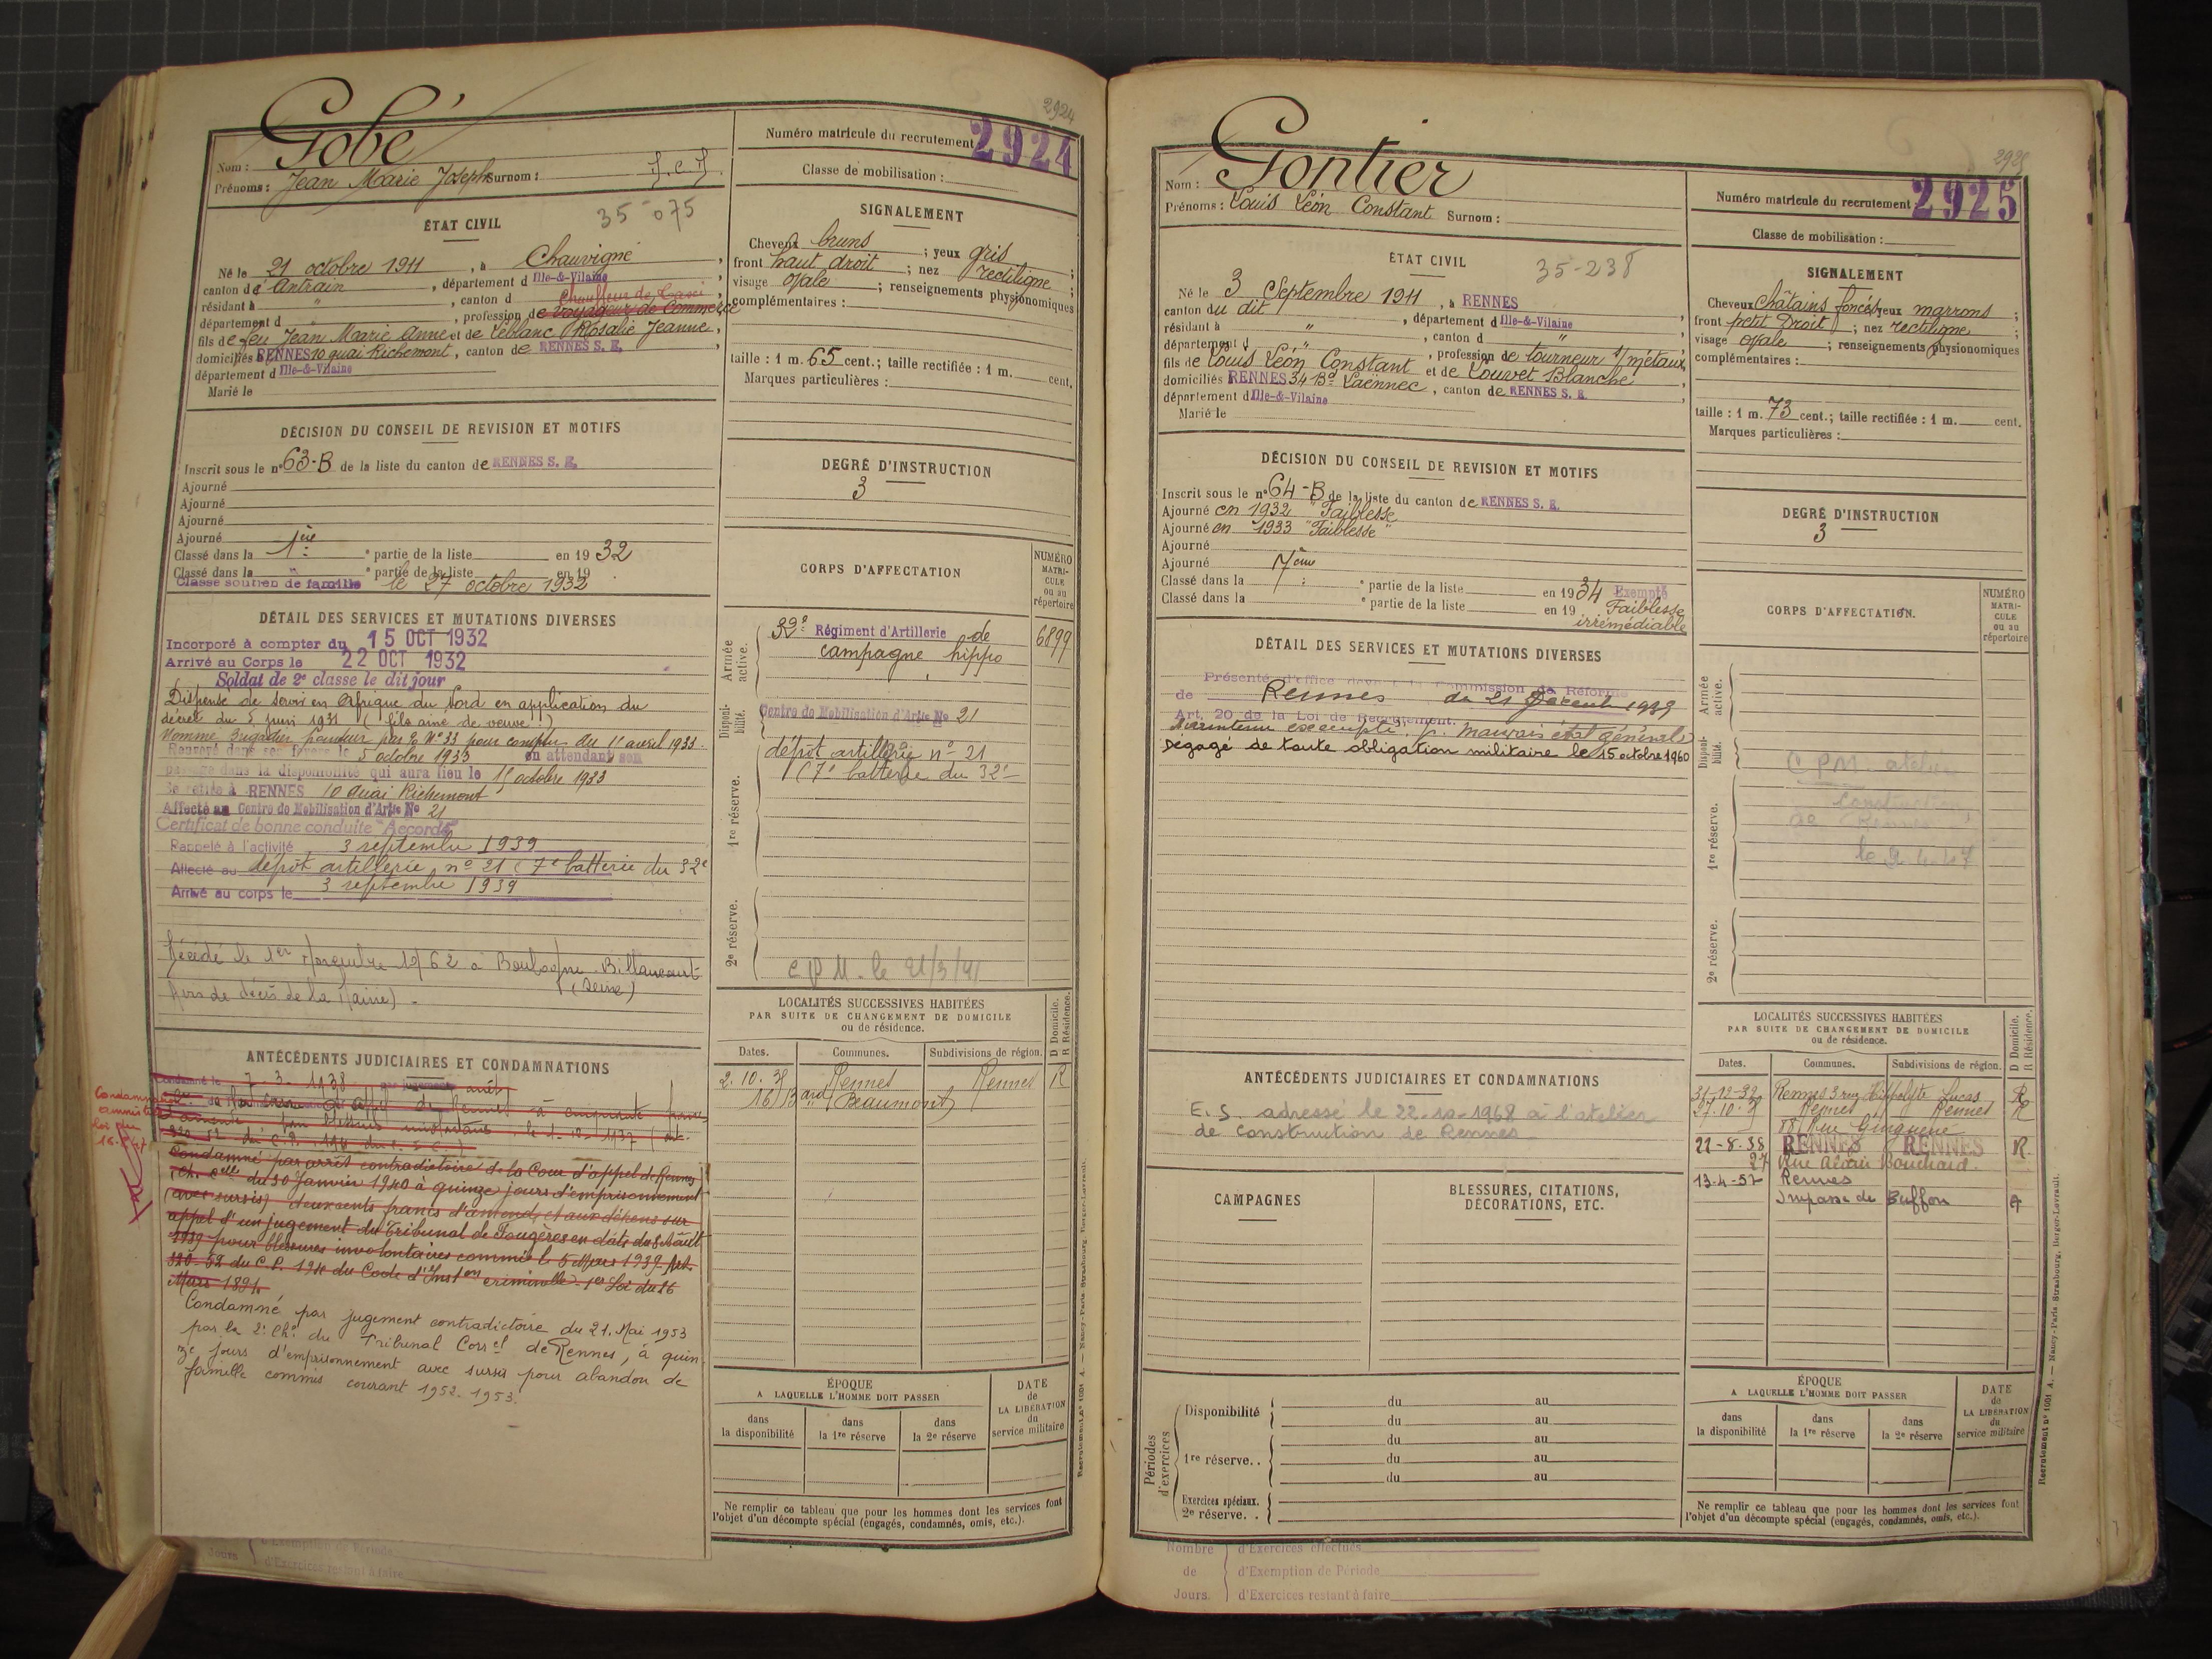 2924
Gobé
Nom :
Prénoms : Jean Marie Joseph Surnom :
35-075
Numéro matricule du recrutement 2924
Classe de mobilisation :
ÉTAT CIVIL
Né le 21 octobre 1911, à Chauvigné,
canton de Antrain, département d Ille-&-Vilaine
résidant à ", canton d
Chauffeur de Taxi
département d ", profession de voyageur de Commerce
fils de feu Jean Marie Anne et de Leblanc Rosalie Jeanne,
domiciliés à RENNES 10 quai Richemont, canton de RENNES S. E.,
département d Ille-&-Vilaine
Marié le
SIGNALEMENT
Cheveux bruns ; yeux gris ;
front haut droit ; nez rectiligne ;
visage ovale ; renseignements physionomiques
complémentaires :
taille : 1 m. 65 cent.; taille rectifiée : 1 m. cent.
Marques particulières :
DÉCISION DU CONSEIL DE REVISION ET MOTIFS
Inscrit sous le n° 63-B de la liste du canton de RENNES S. E.
Ajourné
Ajourné
Ajourné
Ajourné
Classé dans la 1ère partie de la liste en 1932
Classé dans la " partie de la liste en 19
Classé soutien de famille le 27 octobre 1932
DEGRÉ D'INSTRUCTION
3
DÉTAIL DES SERVICES ET MUTATIONS DIVERSES
Incorporé à compter du 15 OCT 1932
Arrivé au Corps le 22 OCT 1932
Soldat de 2e classe le dit jour
Dispensé de servir en Afrique du Nord en application du
décret du 5 juin 1931 (fils aîné de veuve)
Nommé brigadier pour compter du 11 avril 1933.
Renvoyé dans ses foyers le 5 octobre 1933 en attendant son
passage dans la disponibilité qui aura lieu le 15 octobre 1933
Se retire à RENNES 10 Quai Richemont
Affecté au Centre de Mobilisation d'Artie No 21
Certificat de bonne conduite "Accordé"
Rappelé à l'activité 3 septembre 1939
Affecté au dépôt artillerie n° 21 (7e batterie du 32e
Arrivé au corps le 3 septembre 1939
Décédé le 1er 1962 à Boulogne-Billancourt
(Seine)
CORPS D'AFFECTATION
NUMÉRO MATRICULE ou au répertoire
Armée active.
32e Régiment d'Artillerie de
campagne hippo
6899
Disponibilité.
Centre de Mobilisation d'Artie No 21
dépôt artillerie n° 21
(7e batterie du 32e
1re réserve.
2e réserve.
C P M. le 21/3/41
ANTÉCÉDENTS JUDICIAIRES ET CONDAMNATIONS
Condamné le 7-3-1938
Condamné par arrêt contradictoire de la Cour d'appel de Rennes
(ch. elle du 30 Janvier 1940 à quinze jours d'emprisonnement
(avec sursis) deux cents francs d'amende et aux dépens sur
appel d'un jugement du Tribunal de Fougères en date du 8 Août
1939 pour blessures involontaires commis le 5 Mars 1939. Art.
320-52 du C.P. 194 du Code d'Inston criminelle. 1er Loi du 26
Mars 1891.
Condamné par jugement contradictoire du 21. Mai 1953
par la 2e Ch. du Tribunal Correl de Rennes, à quin-
ze jours d'emprisonnement avec sursis pour abandon de
famille commis courant 1952-1953.
LOCALITÉS SUCCESSIVES HABITÉES
PAR SUITE DE CHANGEMENT DE DOMICILE
ou de résidence.
Dates. Communes. Subdivisions de région. D Domicile. R Résidence.
Rennes Rennes R
16 Bard Beaumont
ÉPOQUE
A LAQUELLE L'HOMME DOIT PASSER
dans la disponibilité
dans la 1re réserve
dans la 2e réserve
DATE de LA LIBÉRATION du service militaire
Ne remplir ce tableau que pour les hommes dont les services font
l'objet d'un décompte spécial (engagés, condamnés, omis, etc.).
2925
Gontier
Nom :
Prénoms : Louis Léon Constant Surnom :
35-238
Numéro matricule du recrutement : 2925
Classe de mobilisation :
ÉTAT CIVIL
Né le 3 Septembre 1911, à RENNES
canton du dit, département d Ille-&-Vilaine
résidant à ", canton d "
département d ", profession de tourneur s/métaux,
fils de Louis Léon Constant et de Louvet Blanche,
domiciliés RENNES 34 Bd Laënnec, canton de RENNES S. E.
département d Ille-&-Vilaine
Marié le
SIGNALEMENT
Cheveux châtains foncés yeux marrons ;
front petit Droit ; nez rectiligne ;
visage ovale ; renseignements physionomiques
complémentaires :
taille : 1 m. 73 cent.; taille rectifiée : 1 m. cent.
Marques particulières :
DÉCISION DU CONSEIL DE REVISION ET MOTIFS
Inscrit sous le n° 64-B de la liste du canton de RENNES S. E.
Ajourné en 1932 "Faiblesse
Ajourné en 1933 "Faiblesse"
Ajourné
Ajourné
Classé dans la 7ème partie de la liste en 1934 Exempté
Classé dans la partie de la liste en 19 Faiblesse
irrémédiable
DEGRÉ D'INSTRUCTION
3
DÉTAIL DES SERVICES ET MUTATIONS DIVERSES
Présenté d'office devant la Commission de Réforme
de Rennes du 21 Décemb 1939
Art. 20 de la Loi de Recrutement.
Maintenu exempté. p. mauvais état général
Dégagé de toute obligation militaire le 15 octobre 1960
CORPS D'AFFECTATION.
NUMÉRO MATRICULE ou au répertoire
Armée active.
Disponibilité.
C P M. atelier
construction
de Rennes
1re réserve.
2e réserve.
ANTÉCÉDENTS JUDICIAIRES ET CONDAMNATIONS
E.S. adressé le 22-10-1968 à l'atelier
de construction de Rennes
CAMPAGNES
BLESSURES, CITATIONS,
DÉCORATIONS, ETC.
LOCALITÉS SUCCESSIVES HABITÉES
PAR SUITE DE CHANGEMENT DE DOMICILE
ou de résidence.
Dates. Communes. Subdivisions de région. D Domicile. R Résidence.
31-12-32 Rennes 3 rue Hippolyte Lucas R
Rennes Rennes R
Rue Ginguené
22-8-38 RENNES RENNES R
27 Rue Alain Bouchard.
13-4-57 Rennes
Impasse de Buffon
Périodes d'exercices
Disponibilité du au
du au
1re réserve.. du au
du au
du au
Exercices spéciaux.
2e réserve. .
ÉPOQUE
A LAQUELLE L'HOMME DOIT PASSER
dans la disponibilité
dans la 1re réserve
dans la 2e réserve
DATE de LA LIBÉRATION du service militaire
Ne remplir ce tableau que pour les hommes dont les services font
l'objet d'un décompte spécial (engagés, condamnés, omis, etc.).
Nombre d'Exercices effectués
de d'Exemption de Période
Jours. d'Exercices restant à faire